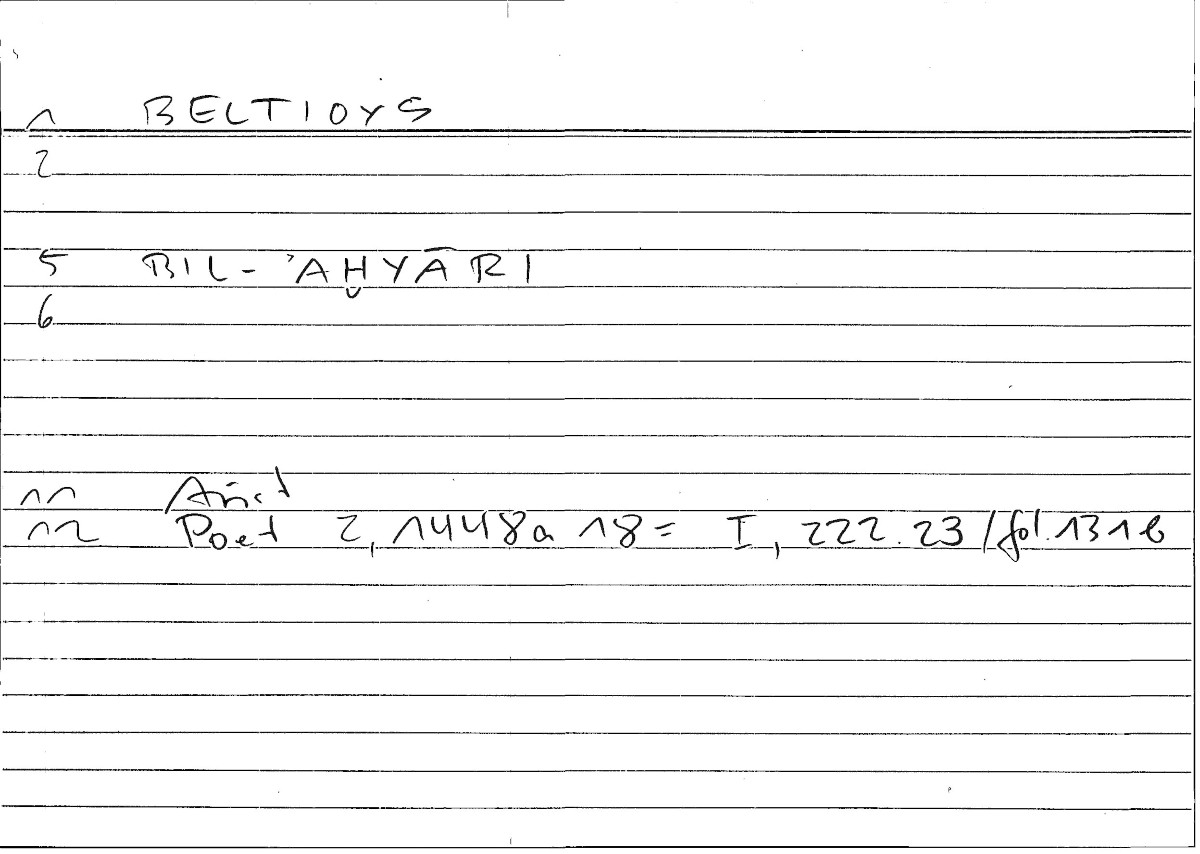 1 BELTIOYS
2
5 BIL-ʾAḪYĀRI
6
11 Arist
12 Poet 2, 1448a 18 = I, 222.23/fol.131b